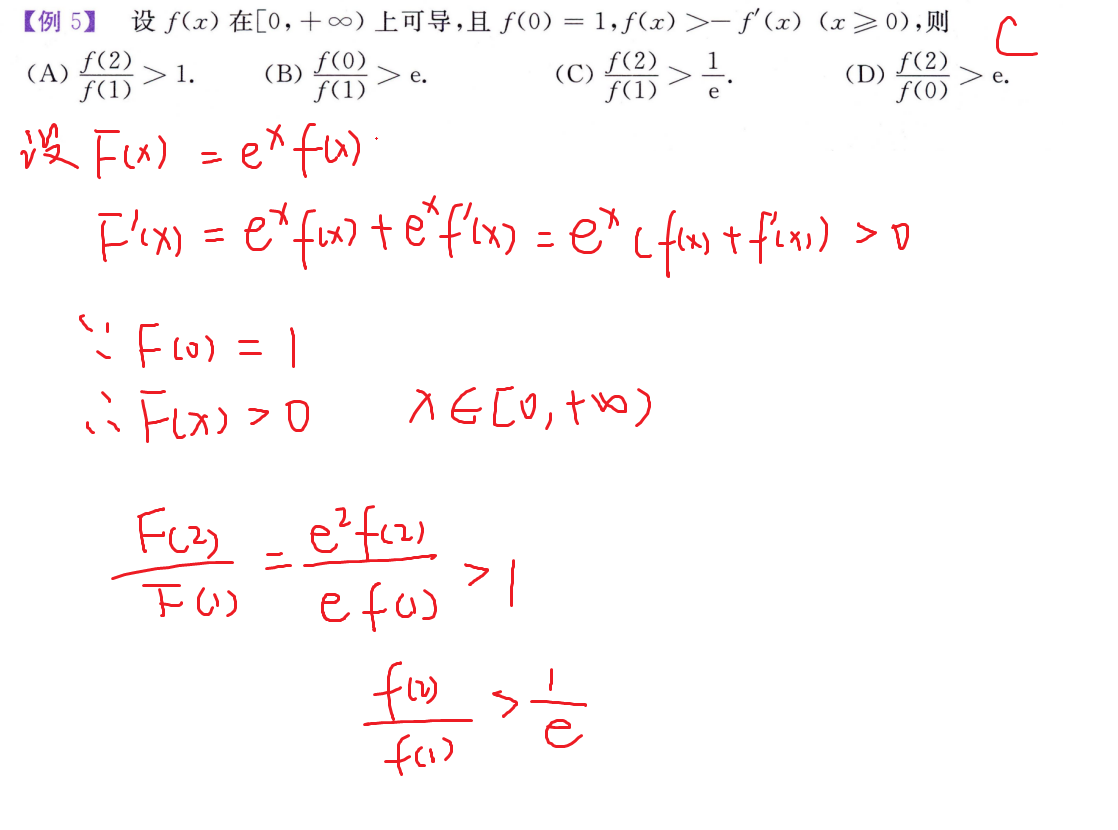 【例 5】 设 f(x) 在[0,+∞) 上可导,且 f(0) = 1,f(x) >− f′(x) (x ⩾ 0),则 C
(A) f(2)/f(1) > 1. (B) f(0)/f(1) > e. (C) f(2)/f(1) > 1/e. (D) f(2)/f(0) > e.
设 F(x) = e^x f(x)
F'(x) = e^x f(x) + e^x f'(x) = e^x (f(x) + f'(x)) > 0
∵ F(0) = 1
∴ F(x) > 0 x ∈ [0, +∞)
F(2)/F(1) = e^2 f(2)/e f(1) > 1
f(2)/f(1) > 1/e